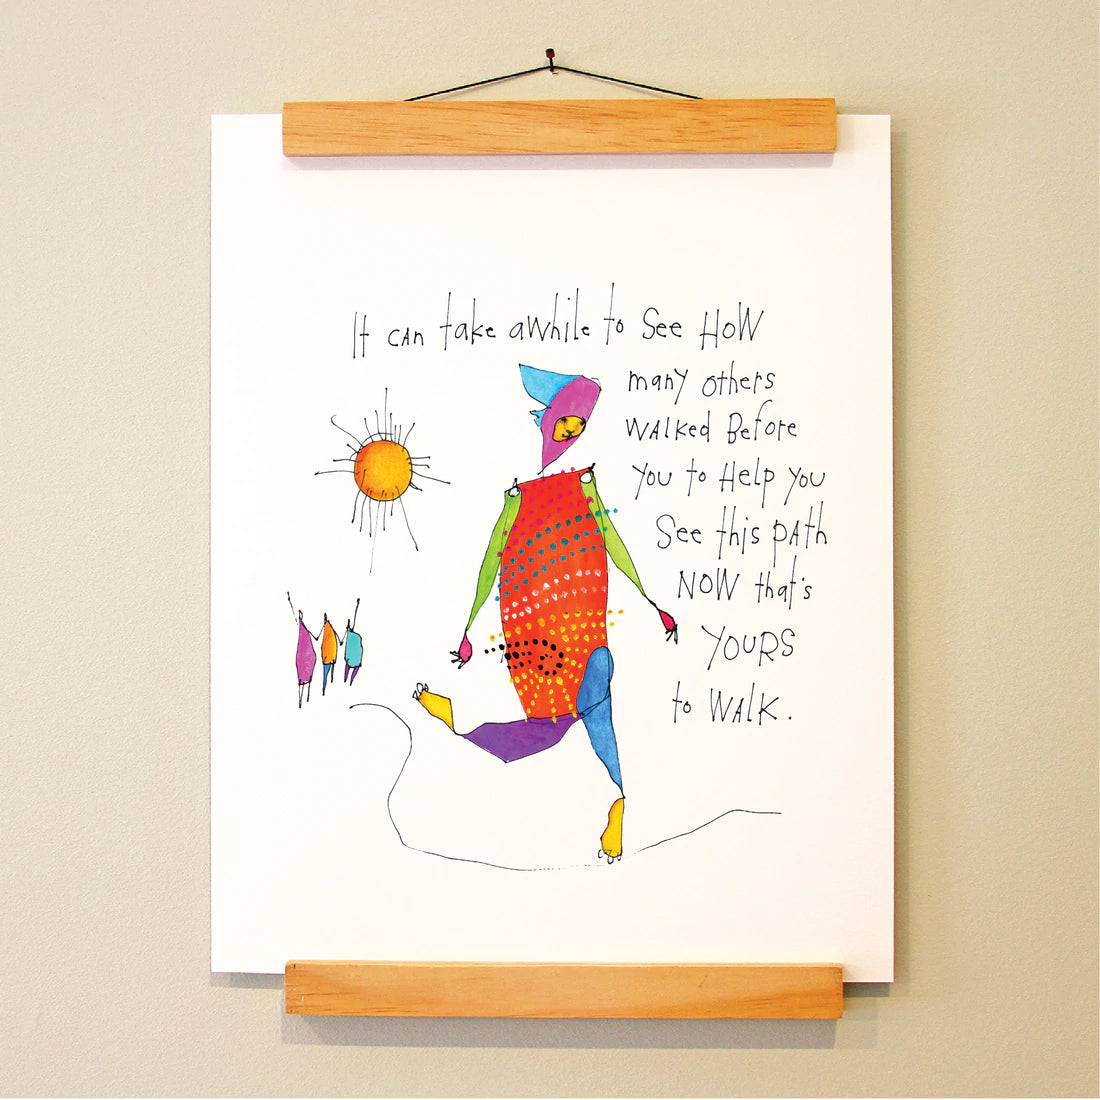 It can take awhile to see HoW
many others
WALKed Before
you to Help you
See this pAth
NOW that's
YOURS
to WALK.